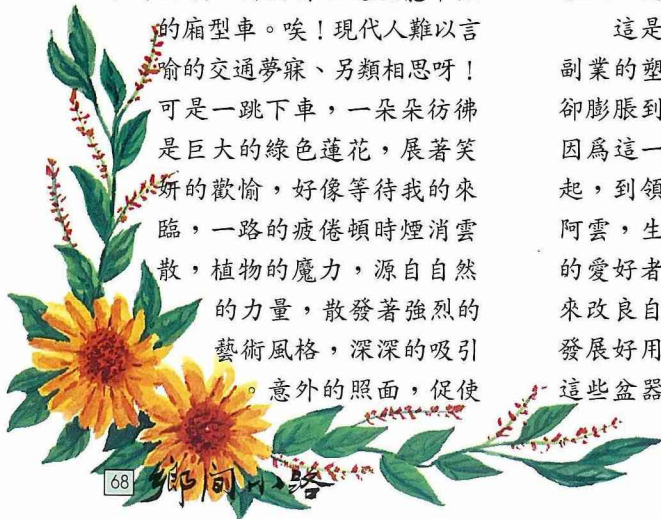 的廂型車。唉！現代人難以言
喻的交通夢寐、另類相思呀！
可是一跳下車，一朵朵彷彿
是巨大的綠色蓮花，展著笑
妍的歡愉，好像等待我的來
臨，一路的疲倦頓時煙消雲
散，植物的魔力，源自自然
的力量，散發著強烈的
藝術風格，深深的吸引
。意外的照面，促使
這是
副業的塑
卻膨脹到
因爲這一
起，到領
阿雲，生
的愛好者
來改良自
發展好用
這些盆器
68 鄉間小路